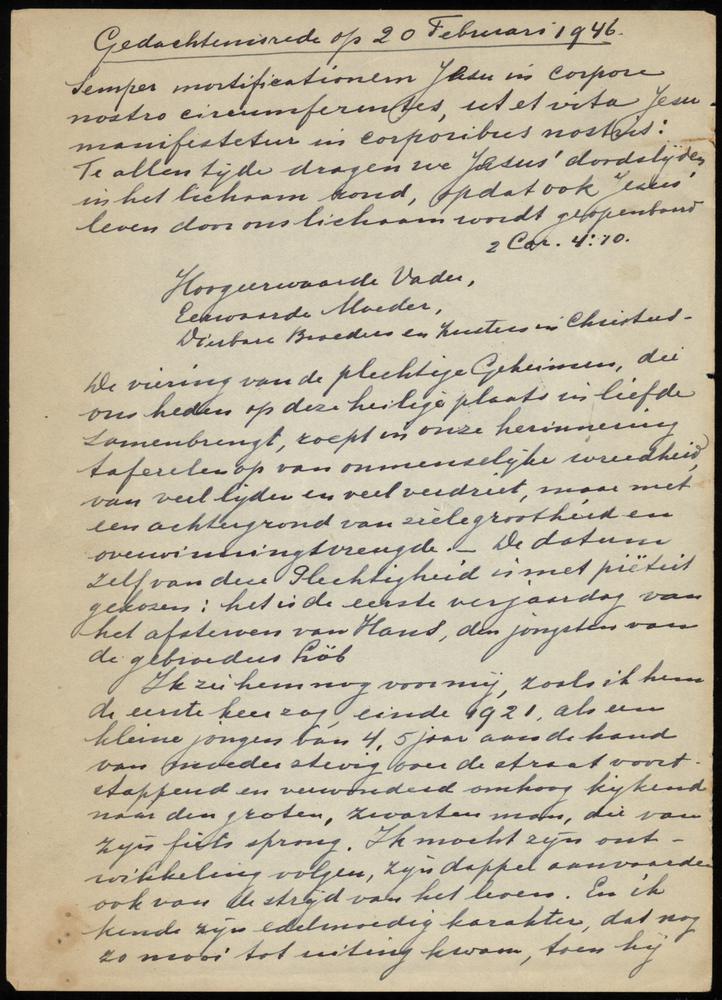 Gedachtenisrede op 20 Februari 1946.
Semper mortificationem Jesu in corpore
nostro circumferentes, ut et vita Jesu
manifestetur in corporibus nostris:
Te allen tijde dragen we Jesus' doodslijden
in het lichaam rond, opdat ook Jesus'
leven door ons lichaam wordt geopenbaard
2 Cor. 4:10.
Hoogeerwaarde Vader,
Eerwaarde Moeder,
Dierbare Broeders en Zusters in Christus-
De viering van de plechtige Geheimen, die
ons heden op deze heilige plaats in liefde
samenbrengt, roept in onze herinnering
taferelen op van onmenselijke wreedheid,
van veel lijden en veel verdriet, maar met
een achtergrond van zielegrootheid en
overwinningsvreugde. – De datum
zelf van deze Plechtigheid is met piëteit
gekozen: het is de eerste verjaardag van
het afsterven van Hans, den jongsten van
de gebroeders Löb
Ik zie hem nog voor mij, zoals ik hem
de eerste keer zag, einde 1921, als een
kleine jongen van 4, 5 jaar aan de hand
van moeder stevig over de straat voort-
stappend en verwonderd omhoog kijkend
naar den groten, zwarten man, die van
zijn fiets sprong. Ik mocht zijn ont-
wikkeling volgen, zijn dapper aanvaarden
ook van de strijd van het leven. En ik
kende zijn edelmoedig karakter, dat nog
zo mooi tot uiting kwam, toen hij